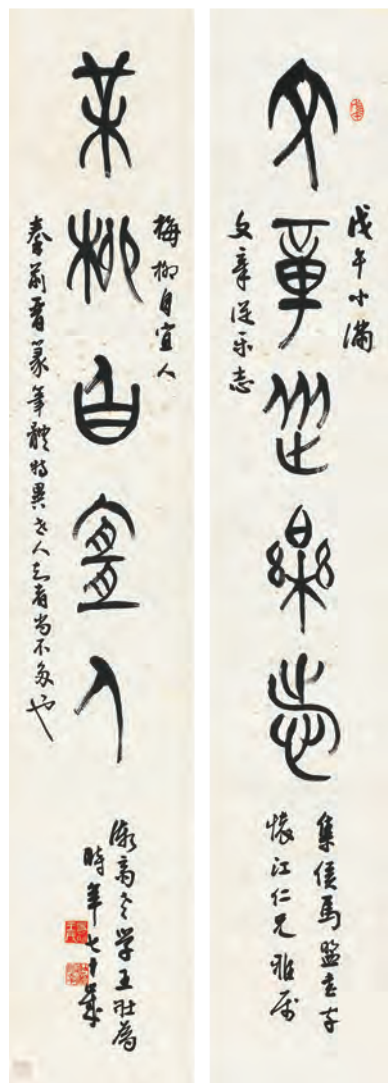 戊午小滿
文章從樂志
文章從樂志
集侯馬盟書字
懷江仁兄雅屬
梅柳自宜人
某柳自宜人
秦前晉篆筆體特異世人知者尚不多也
漸齋老学王壯為
時年七十歲